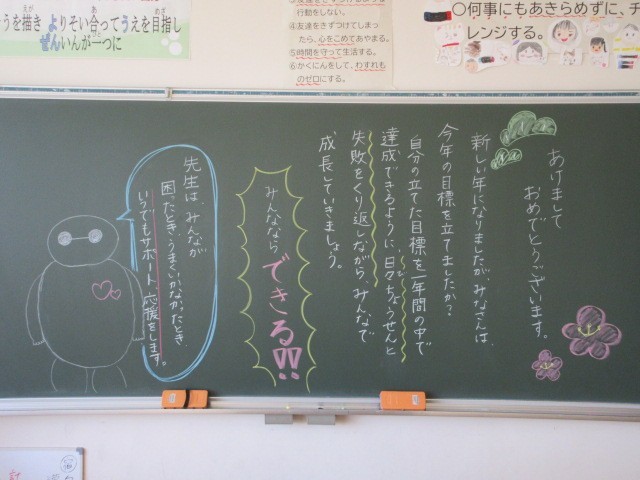 あけまして
おめでとうございます。
新しい年になりましたが、みなさんは、
今年の目標を立てましたか?
自分の立てた目標を一年間の中で
達成できるように、日々ちょうせんと
失敗をくり返しながら、みんなで
成長していきましょう。
みんななら
できる!!
先生は、みんなが
困ったとき、うまくいかなかったとき、
いつでもサポート、応援をします。
うを描き よりそい合ってうえを目指し
ぜんいんが一つに
えが
あ
めざ
行動をしない。
④友達をきずつけてしまっ
たら、心をこめてあやまる。
⑤時間を守って生活する。
⑥かくにんをして、わすれも
のゼロにする。
○何事にもあきらめずに、チ
レンジする。